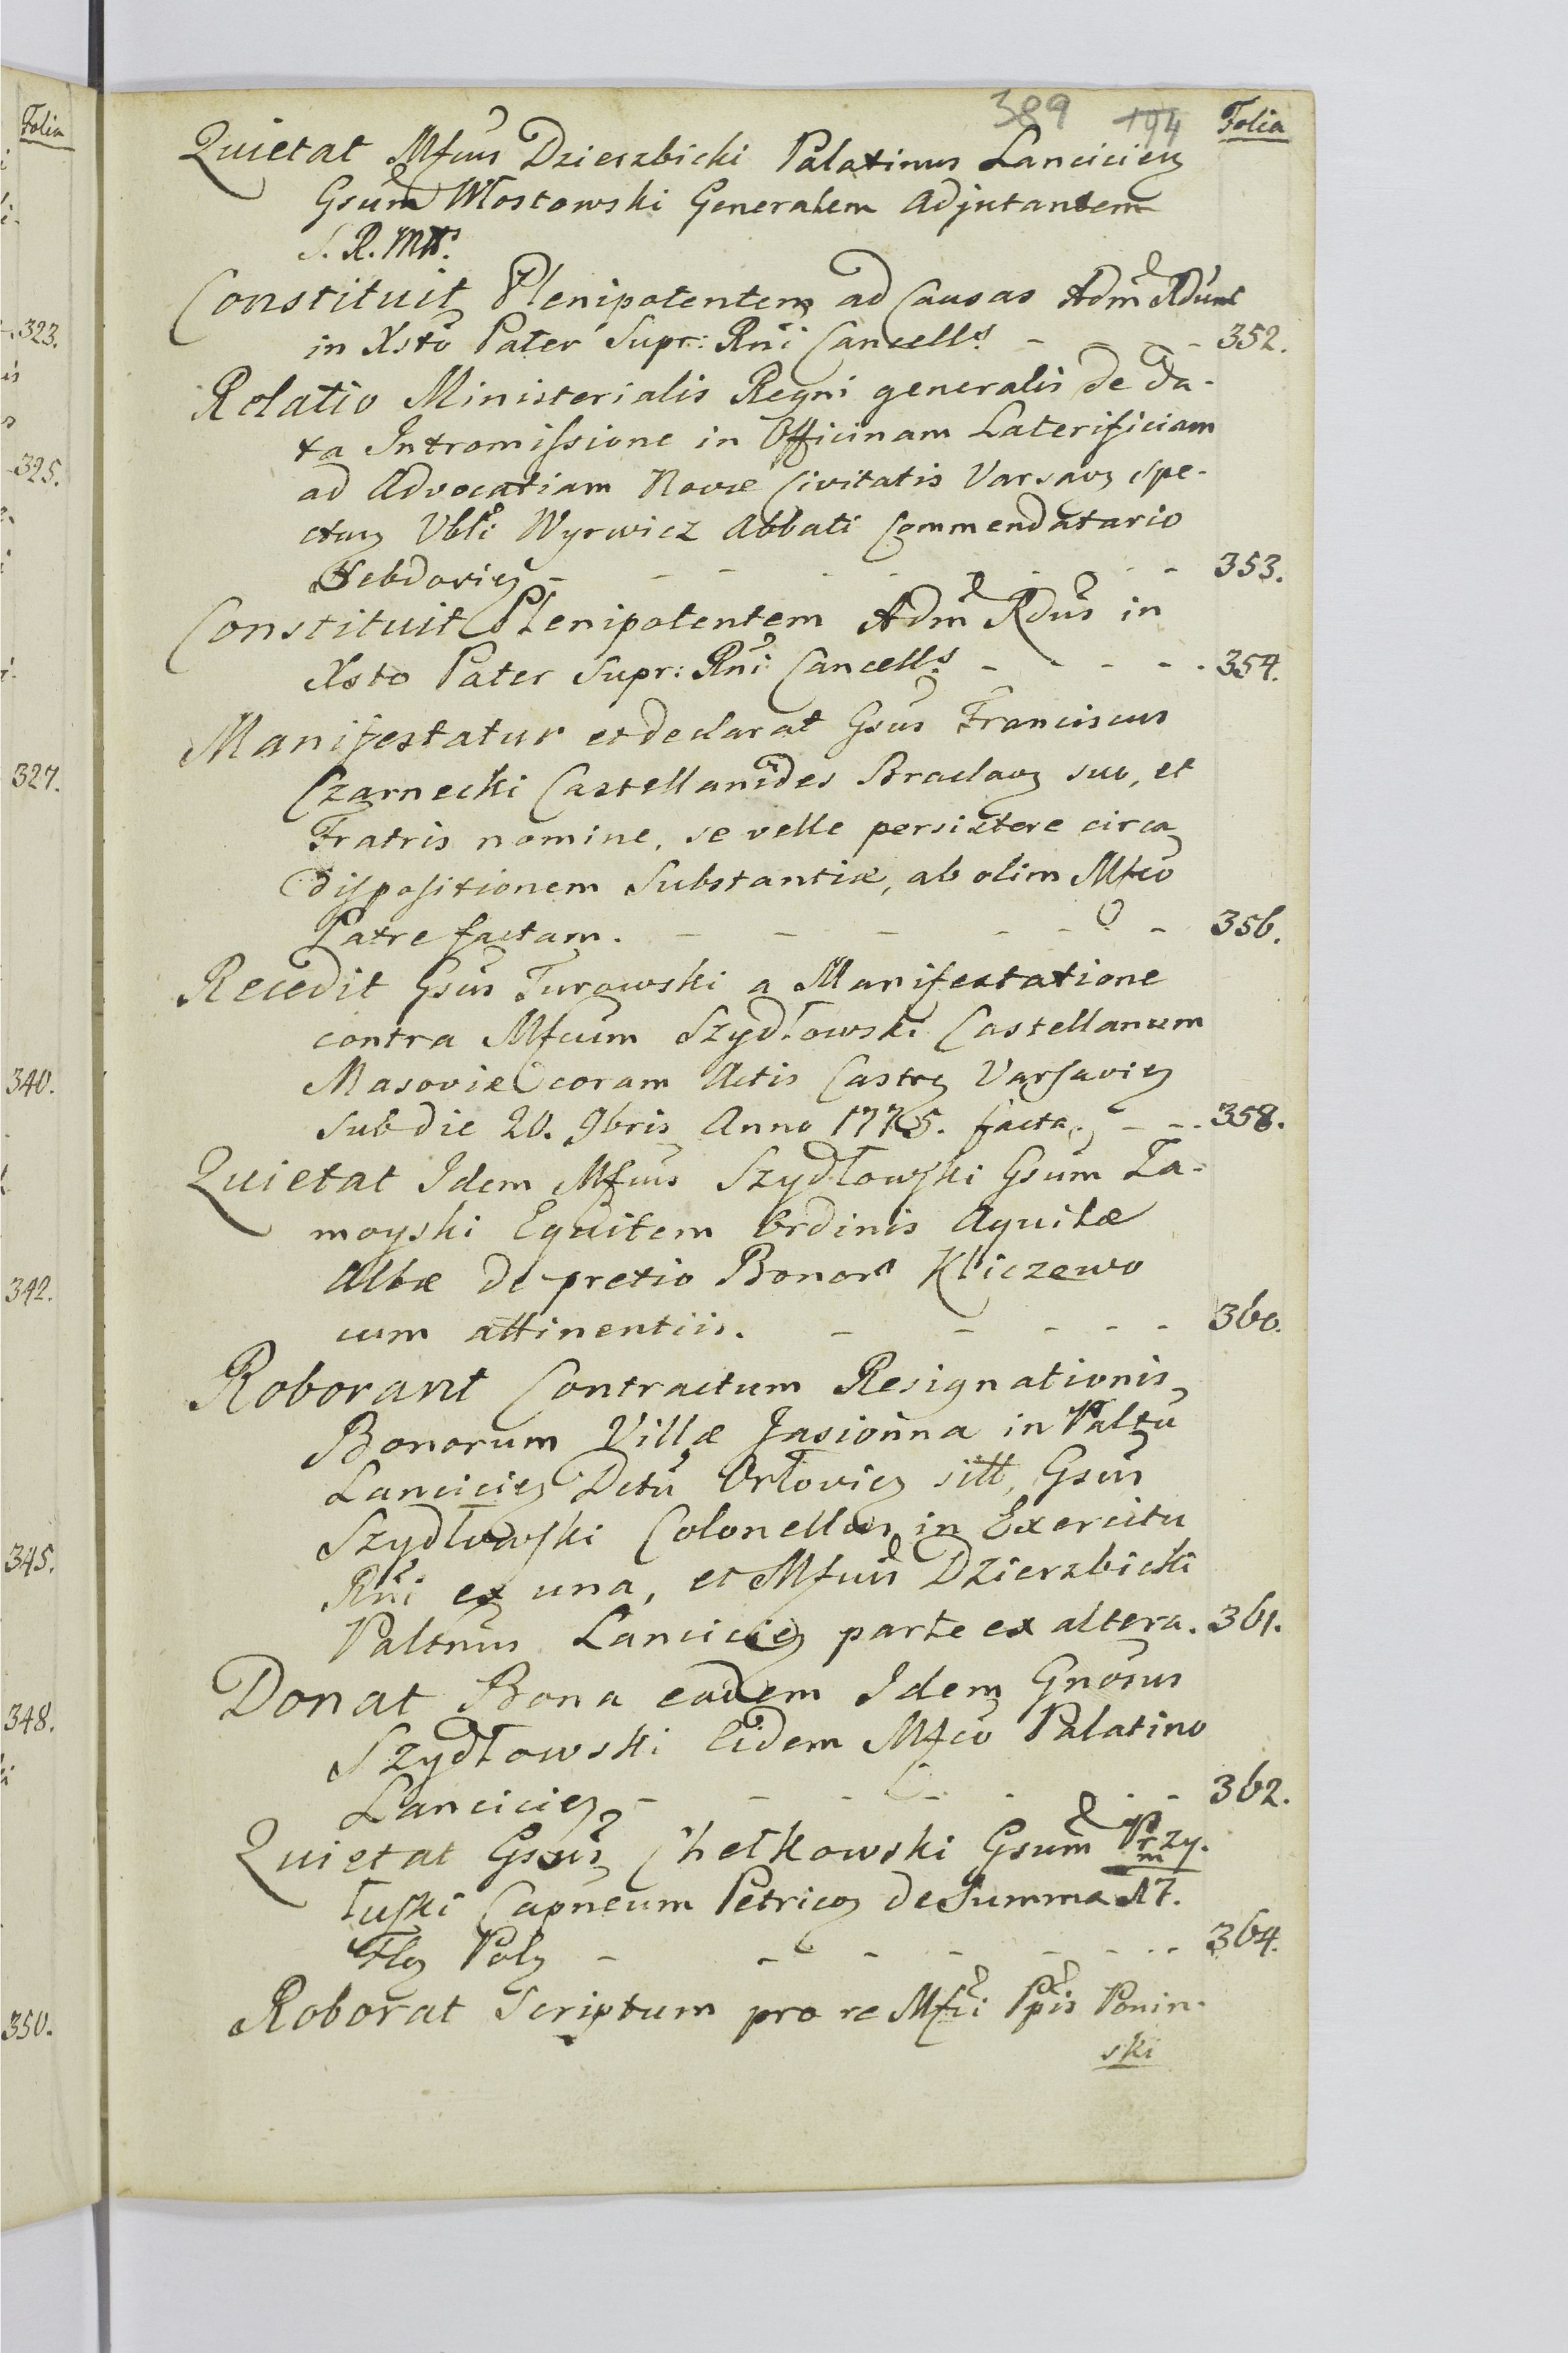 389 194 Folia
Quietat Mfcus Dzierzbicki Palatinus Lancicien
Gsum Mostowski Generalem Adjutantem
S. R. Mtis.
Constituit Plenipotentem ad Causas Adm Rdus
in Xsto Pater Supr: Rni Cancells - - - - 352.
Relatio Ministerialis Regni generalis de da-
ta Intromissione in Officinam Laterificiam
ad Advocatiam Novæ Civitatis Varsav spe-
ctan Vbli Wyrwicz Abbati Commendatario
Hebdovien - - - - - - - 353.
Constituit Plenipotentem Adm Rdus in
Xsto Pater Supr: Rni Cancells - - - - 354.
Manifestatur et declarat Gsus Franciscus
Czarnecki Castellanides Braclav suo, et
Fratris nomine, se velle persistere circa
dispositionem Substantiæ, ab olim Mfco
Patre factam. - - - - - - 356.
Recedit Gsus Turowski a Manifestatione
contra Mfcum Szydłowski Castellanum
Masoviæ coram Actis Castren Varsavien
sub die 20. 9bris Anno 1775. facta. - - 358.
Quietat Idem Mfcus Szydłowski Gsum Za-
moyski Equitem Ordinis Aquilæ
Albæ de pretio Bonor Kliczewo
cum attinentiis. - - - - - 360.
Roborant Contractum Resignationis
Bonorum Villæ Jasionna in Paltu
Lancicien Dctu Orłovien sitt, Gsus
Szydłowski Colonellus in Exercitu
Rni ex una, et Mfcus Dzierzbicki
Paltnus Lancicien parte ex altera. 361.
Donat Bona eadem Idem Gnosus
Szydłowski Eidem Mfco Palatino
Lancicien - - - - - - 362.
Quietat Gsus Chełkowski Gsum Przy-
łuski Capneum Petricov de Summa 17. m
Flor Pol - - - - - - 364.
Roborat Scriptum pro re Mfci Ppis Ponin-
ski
Folia
323.
325.
327.
340.
342.
345.
348.
350.